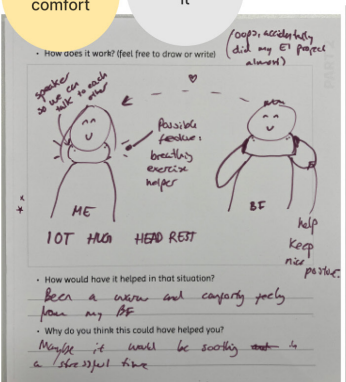 comfort
it
• How does it work? (feel free to draw or write)
(oops, accidentally
did my
project
almost)
speaker
so we can
talk to each
other
Possible
feature:
breathing
exercise
helper
ME
BF
IOT HUG HEAD REST
help
keep
nice
posture.
• How would have it helped in that situation?
Been a warm and comforty feely
from my BF
• Why do you think this could have helped you?
Maybe it would be soothing in
a stressful time